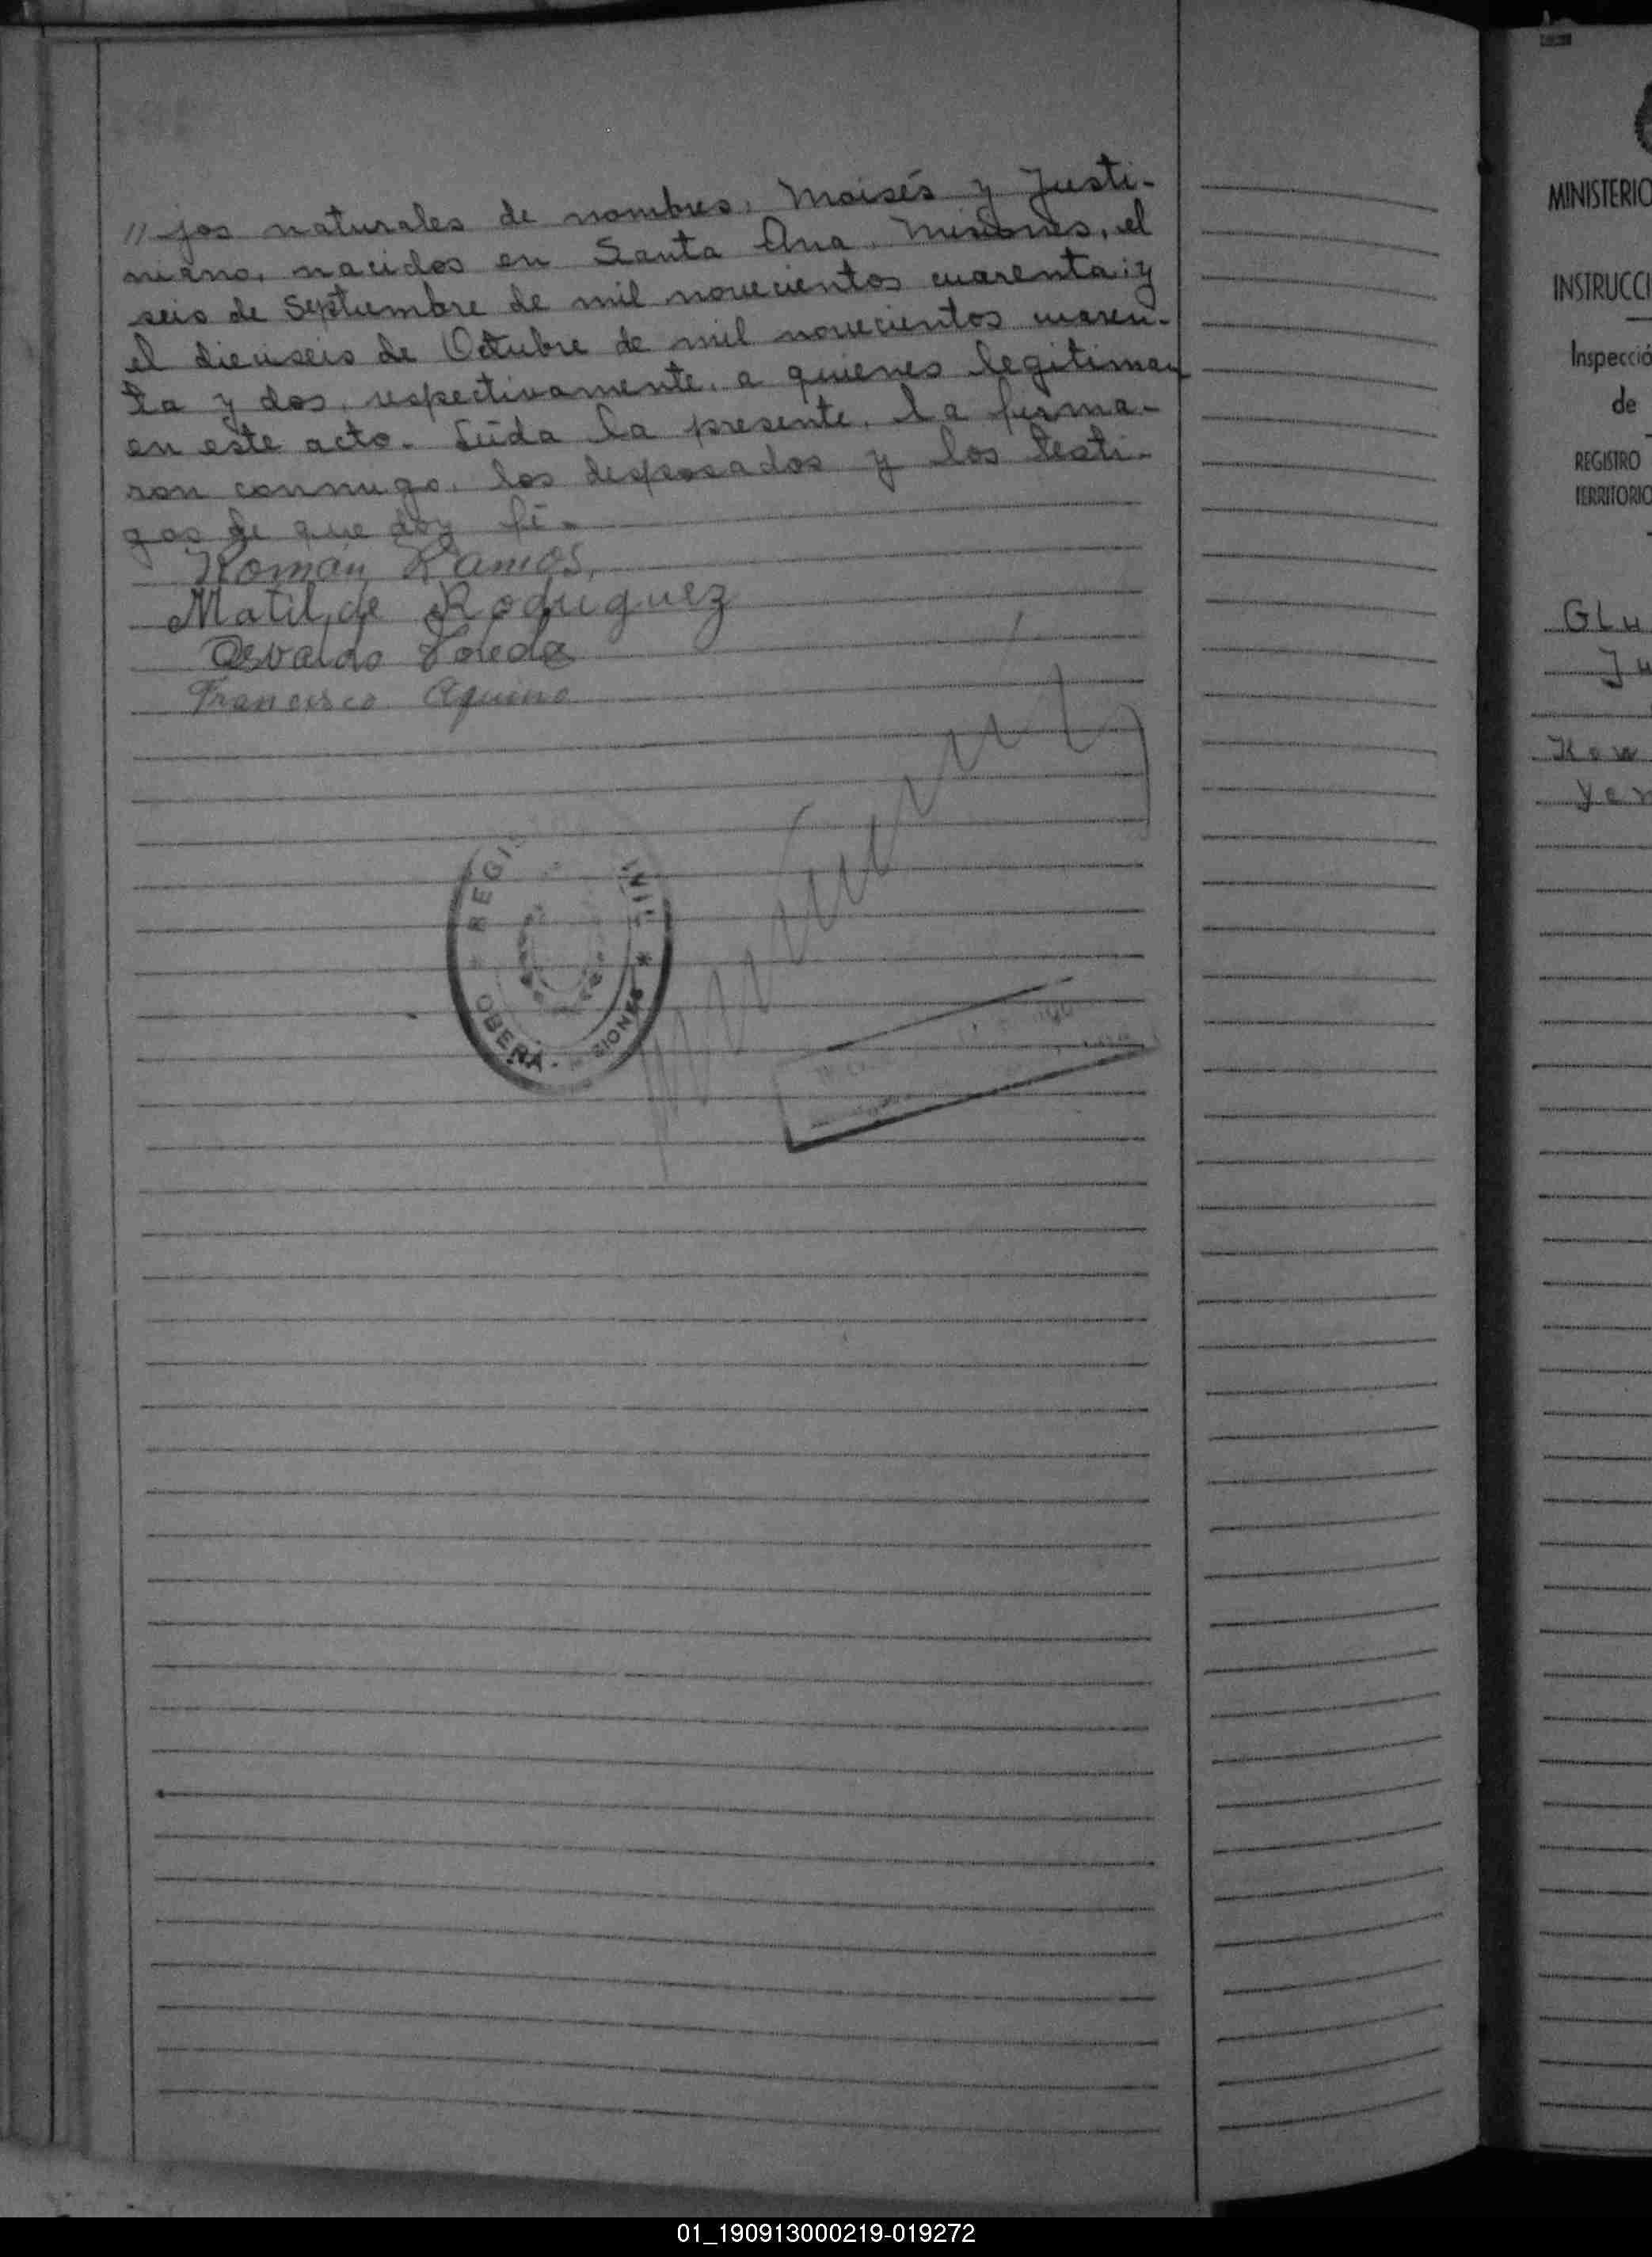 // jos naturales de nombres: Moisés y Justi-
niano, nacidos en Santa Ana, Misiones, el
seis de Septiembre de mil novecientos cuarenta; y
el dieciseis de Octubre de mil novecientos cuaren-
ta y dos, respectivamente, a quienes legitiman
en este acto.- Leída la presente, la firma-
ron conmigo, los desposados y los testi-
gos de que doy fé.-
Román Ramos,
Matilde Rodriguez
Osvaldo Toledo
Francisco Aquino
REGIS CIVIL
OBERÁ - SIONES
MINISTERIO
INSTRUCCI
Inspecció
de
REGISTRO
TERRITORIO
GLu
Ju
Kow
Yer
01_190913000219-019272